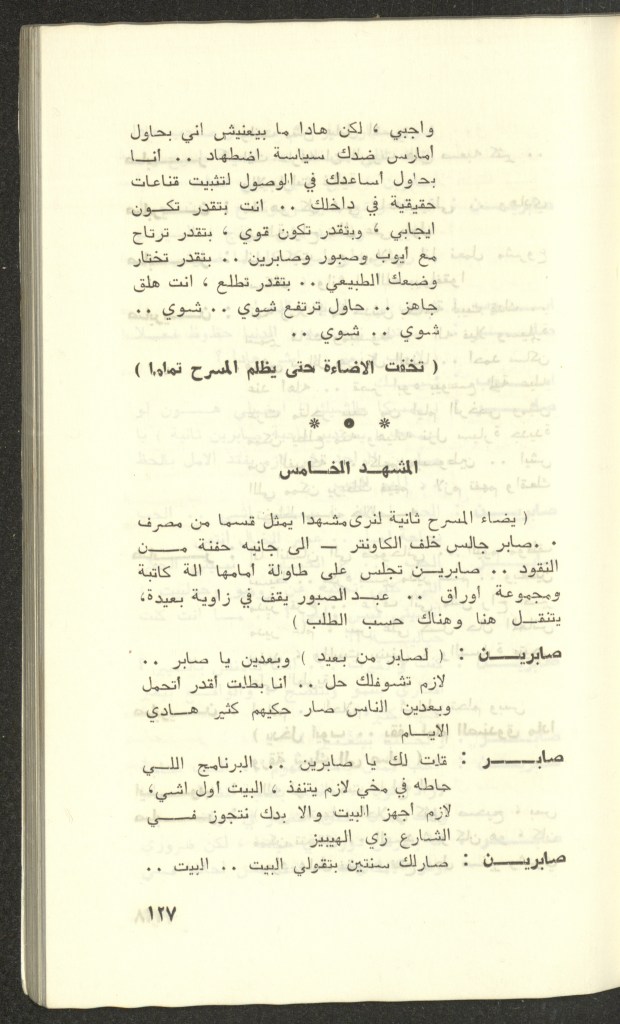 واجبي ، لكن هادا ما بيعنيش اني بحاول
امارس ضدك سياسة اضطهاد .. انا
بحاول أساعدك في الوصول لتثبيت قناعات
حقيقية في داخلك .. انت بتقدر تكون
ايجابي ، وبتقدر تكون قوي ، بتقدر ترتاح
مع أيوب وصبور وصابرين .. بتقدر تختار
وضعك الطبيعي .. بتقدر تطلع ، انت هلق
جاهز .. حاول ترتفع شوي .. شوي ..
شوي .. شوي ..
( تخفت الاضاءة حتى يظلم المسرح تماما )
* • *
المشهد الخامس
( يضاء المسرح ثانية لنرى مشهدا يمثل قسما من مصرف
.. صابر جالس خلف الكاونتر — الى جانبه حفنة من
النقود .. صابرين تجلس على طاولة أمامها الة كاتبة
ومجموعة اوراق .. عبد الصبور يقف في زاوية بعيدة،
يتنقل هنا وهناك حسب الطلب )
صابرين : ( لصابر من بعيد ) وبعدين يا صابر ..
لازم تشوفلك حل .. انا بطلت أقدر أتحمل
وبعدين الناس صار حكيهم كثير هادي
الايام
صابر : قلت لك يا صابرين .. البرنامج اللي
حاطه في مخي لازم يتنفذ ، البيت أول اشي،
لازم أجهز البيت والا بدك نتجوز في
الشارع زي الهيبيز
صابرين : صارلك سنتين بتقولي البيت .. البيت ..
١٢٧